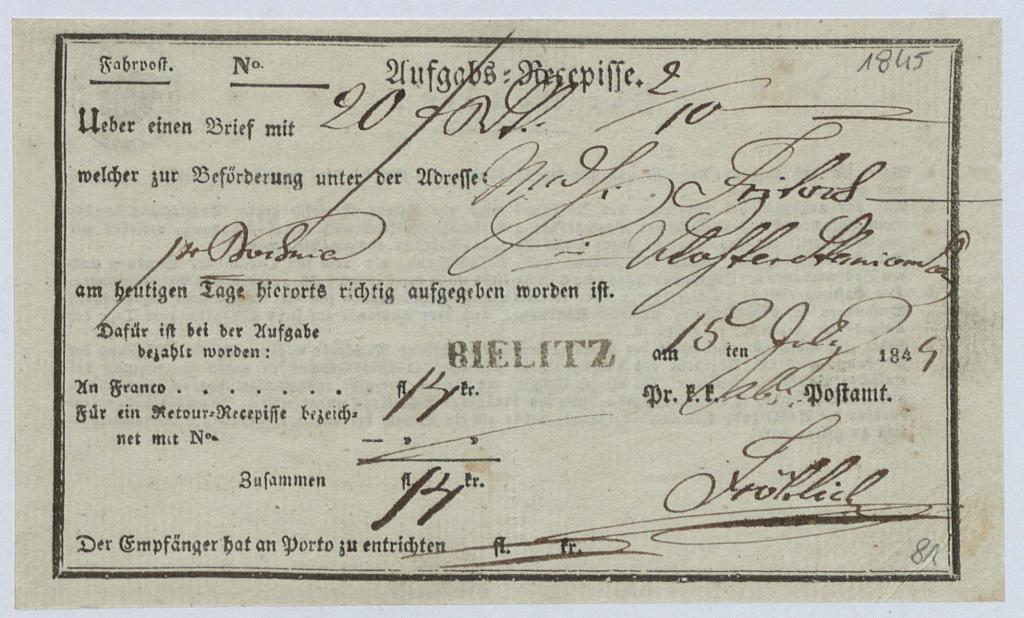 1845
Fahrpost. No. Aufgabs-Recepisse. 2
Ueber einen Brief mit 20 f 10
welcher zur Beförderung unter der Adresse:
pr
am heutigen Tage hierorts richtig aufgegeben worden ist.
Dafür ist bei der Aufgabe
bezahlt worden:
BIELITZ am 15 ten July 1845
An Franco . . . . . . . fl. 14 kr. Pr. k. k. Abs. Postamt.
Für ein Retour-Recepisse bezeich-
net mit No. — „ „
Zusammen fl. 14 kr.
Fröhlich
Der Empfänger hat an Porto zu entrichten fl. kr.
81